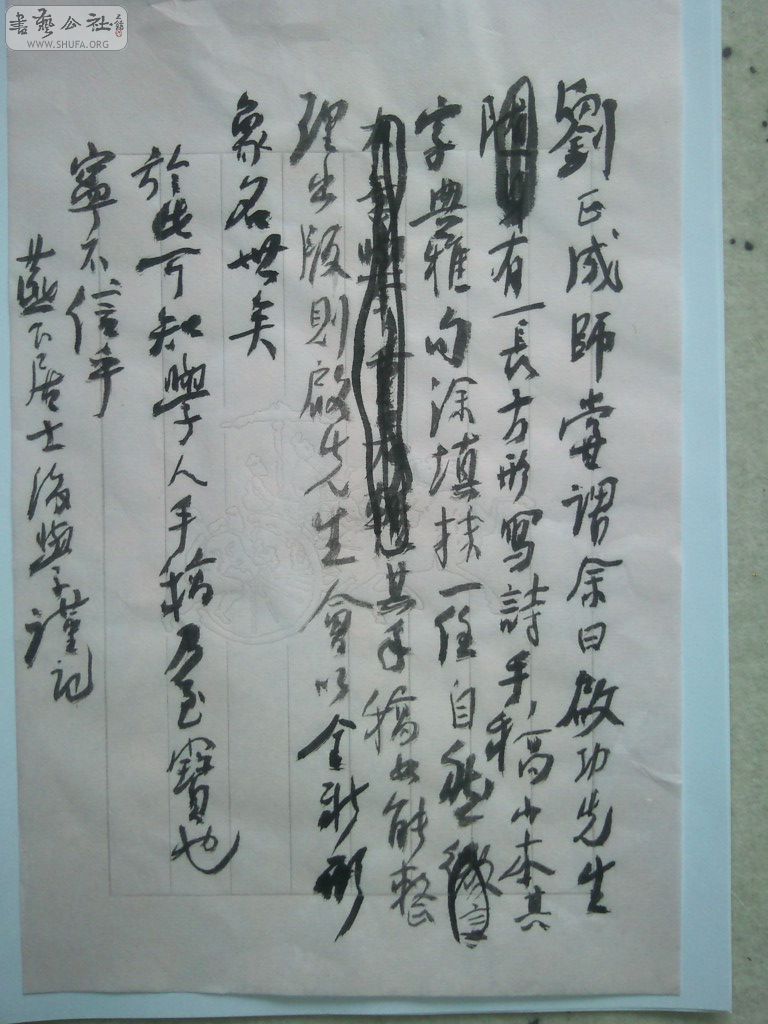 書藝公社
WWW.SHUFA.ORG
劉正成師嘗謂余曰啟功先生
有一長方形寫詩手稿小本其
字典雅句涂填抹一任自然
其手稿如能整
理出版則啟先生會以全新形
象名世矣
於此可知學人手稿乃至寶也
寧不信乎
燕下居士後學 謹記